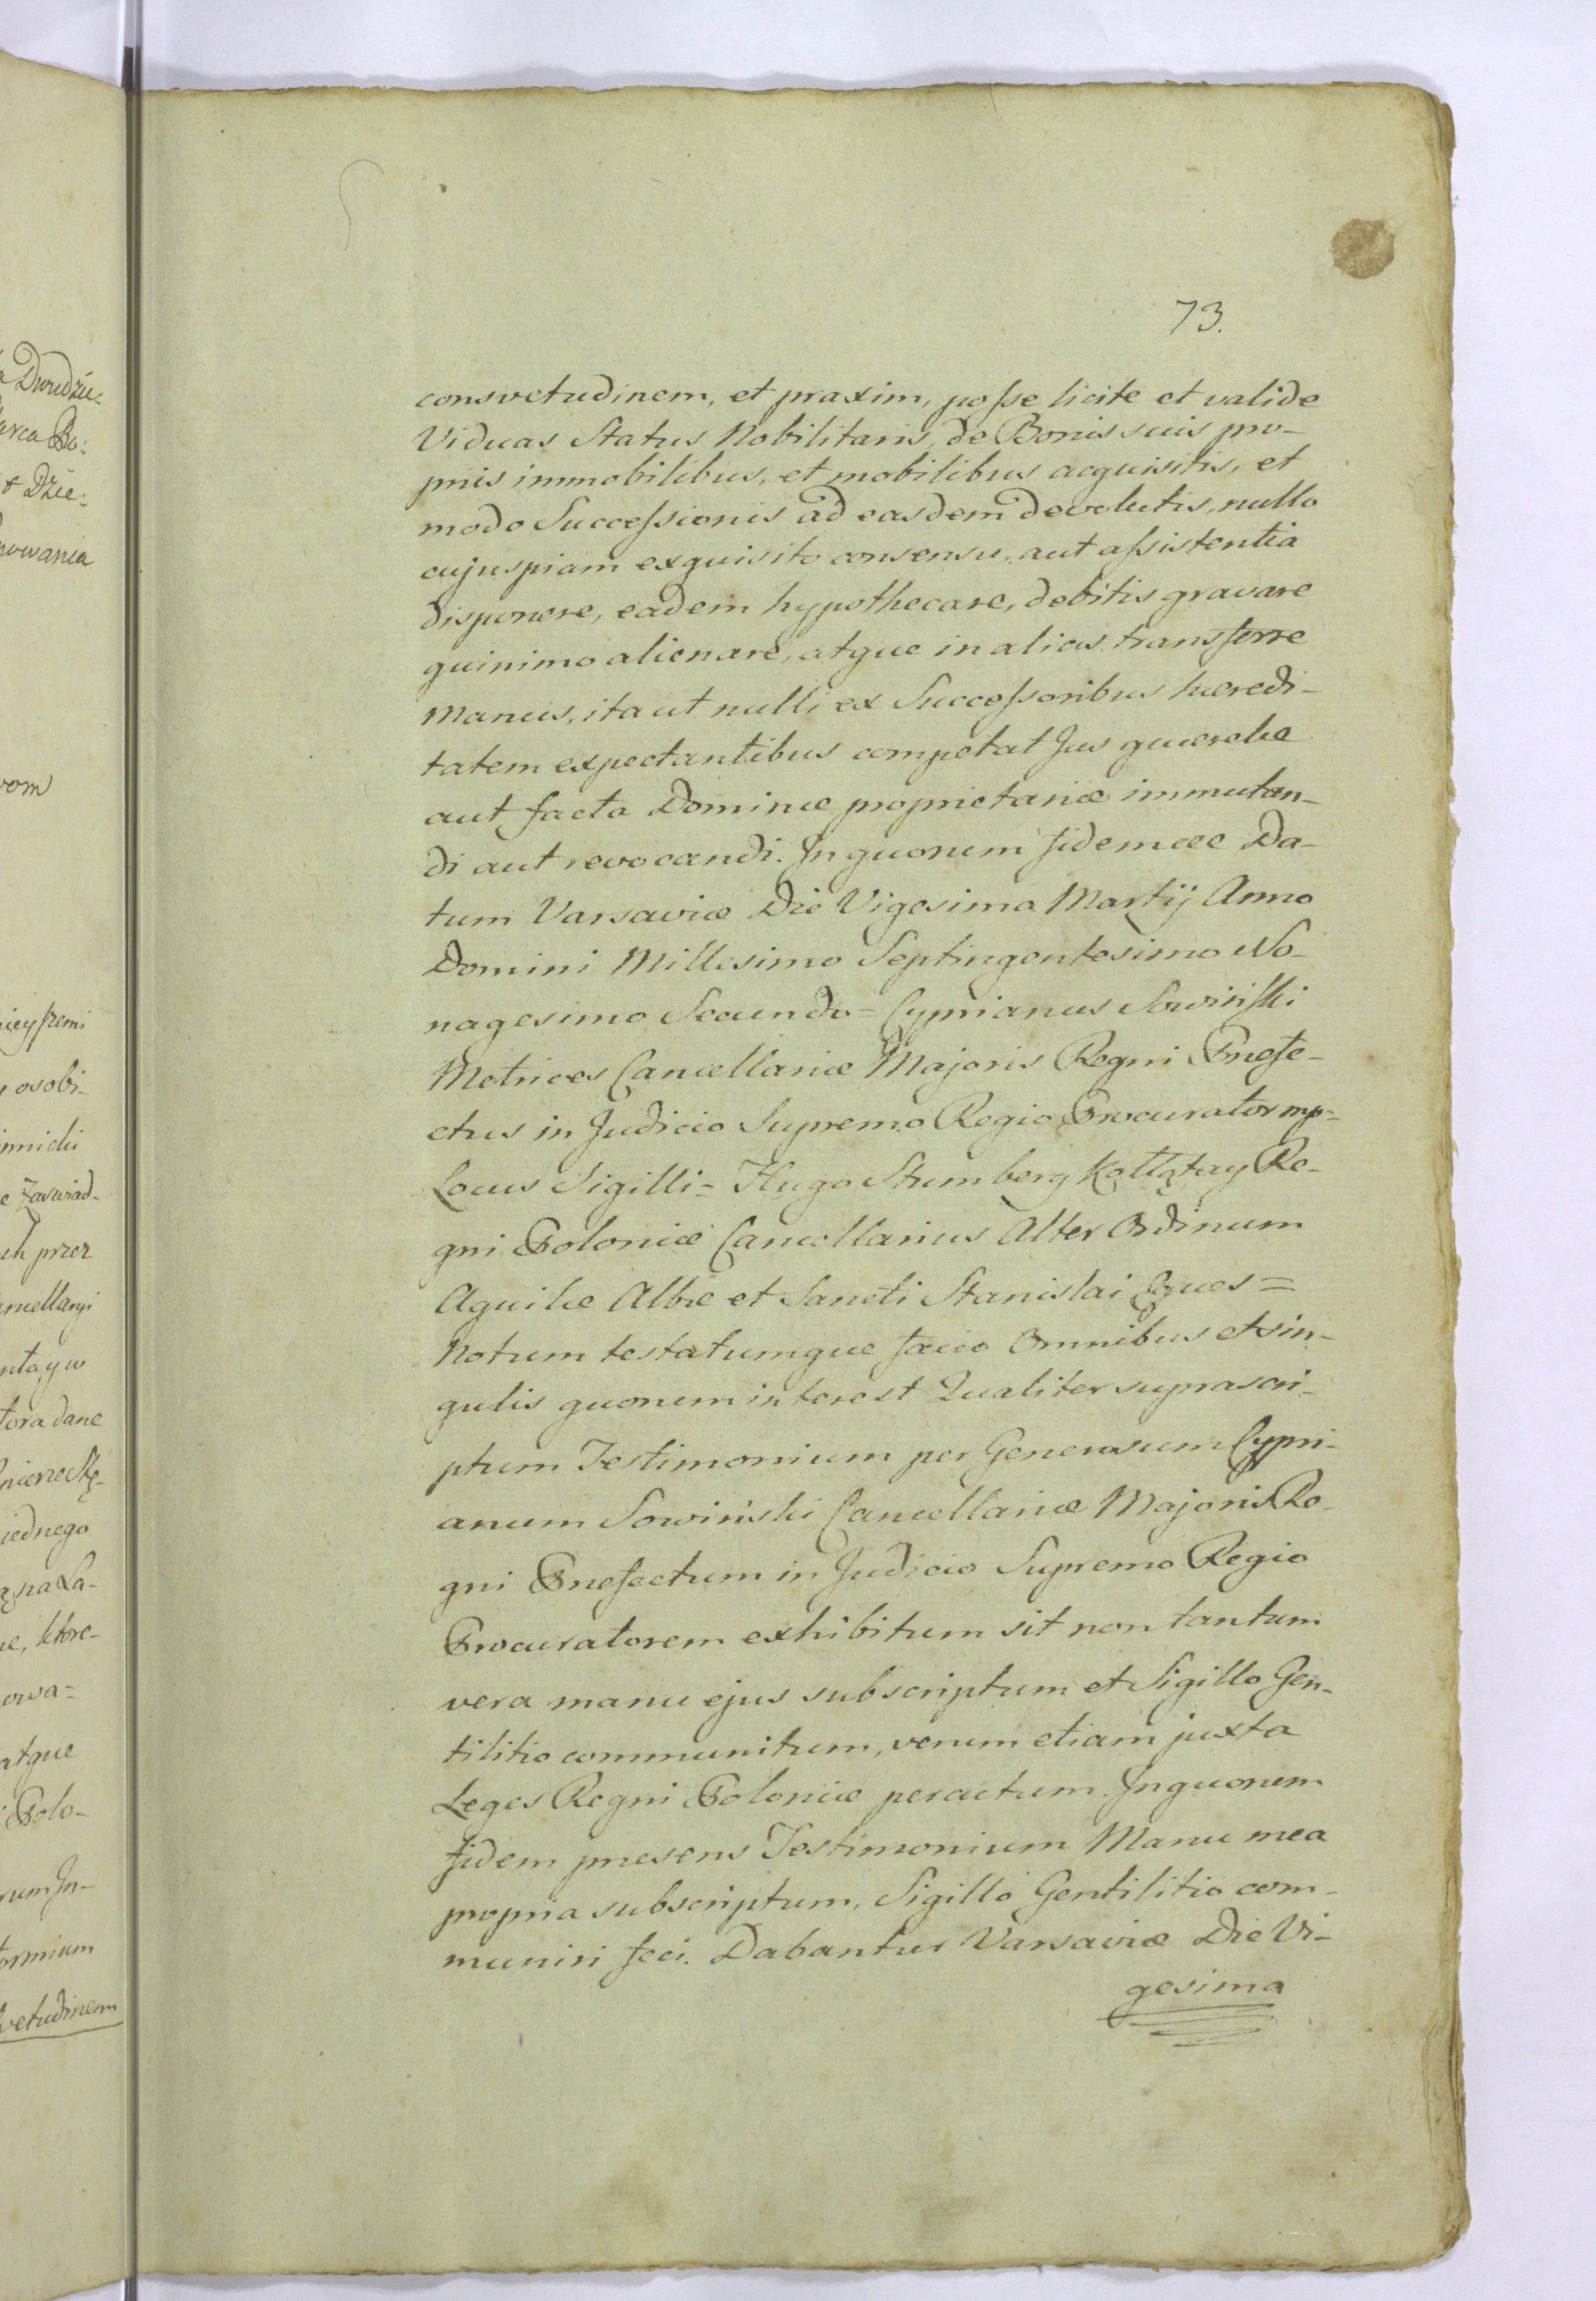 73.
consvetudinem, et praxim, posse licite et valide
Viduas Status Nobilitaris, de Bonis suis pro-
priis immobilibus, et mobilibus acquisitis, et
modo Successionis ad easdem devolutis, nullo
cujuspiam exquisito consensu, aut assistentia
disponere, eadem hypothecare, debitis gravare
quinimo alienare, atque in alias transferre
Manus, ita ut nulli ex Successoribus hæredi-
tatem expectantibus competat Jus querelæ
aut facta Dominæ proprietariæ immutan-
di aut revocandi. In quorum fidem &c Da-
tum Varsaviæ Die Vigesima Martij Anno
Domini Millesimo Septingentesimo No-
nagesimo Secundo = Cyprianus Sowiński
Metrices Cancellariæ Majoris Regni Præfe-
ctus in Judicio Supremo Regio Procurator mp-
Locus Sigilli = Hugo Stumberg Kołłątay Re-
gni Poloniæ Cancellarius Alter Ordinum
Aquilæ Albæ et Sancti Stanislai Eques =
Notum testatumque facio Omnibus et sin-
gulis quorum interest Qualiter suprascri-
ptum Testimonium per Generosum Cypri-
anum Sowiński Cancellariæ Majoris Re-
gni Præfectum in Judicio Supremo Regio
Procuratorem exhibitum sit non tantum
vera manu ejus subscriptum et Sigillo Gen-
tilitio communitum, verum etiam juxta
Leges Regni Poloniæ peractum. In quorum
fidem præsens Testimonium Manu mea
propria subscriptum, Sigillo Gentilitio com-
muniri feci. Dabantur Varsaviæ Die Vi-
gesima